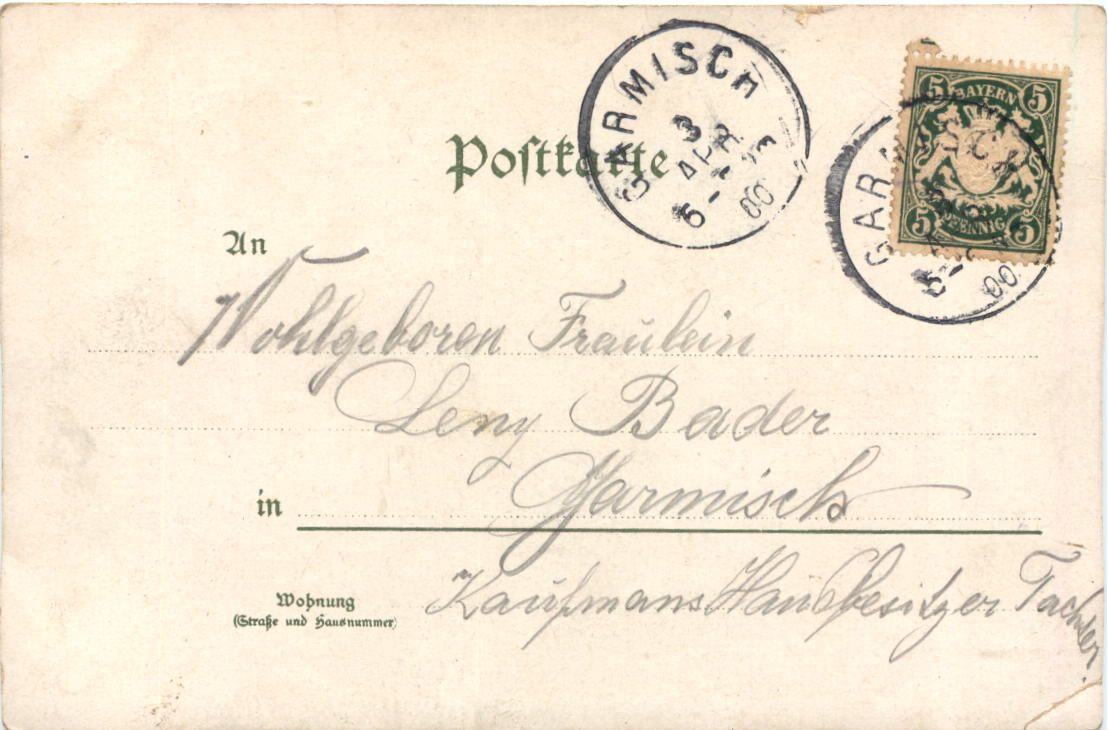 GARMISCH
3
APR
5-6
00
5 BAYERN 5
5 PFENNIG 5
GARMISCH
APR
5-6
00
Postkarte
An
Wohlgeboren Fräulein
Leny Bader
in Garmisch
Wohnung
(Straße und Hausnummer)
Kaufmans Hausbesitzer